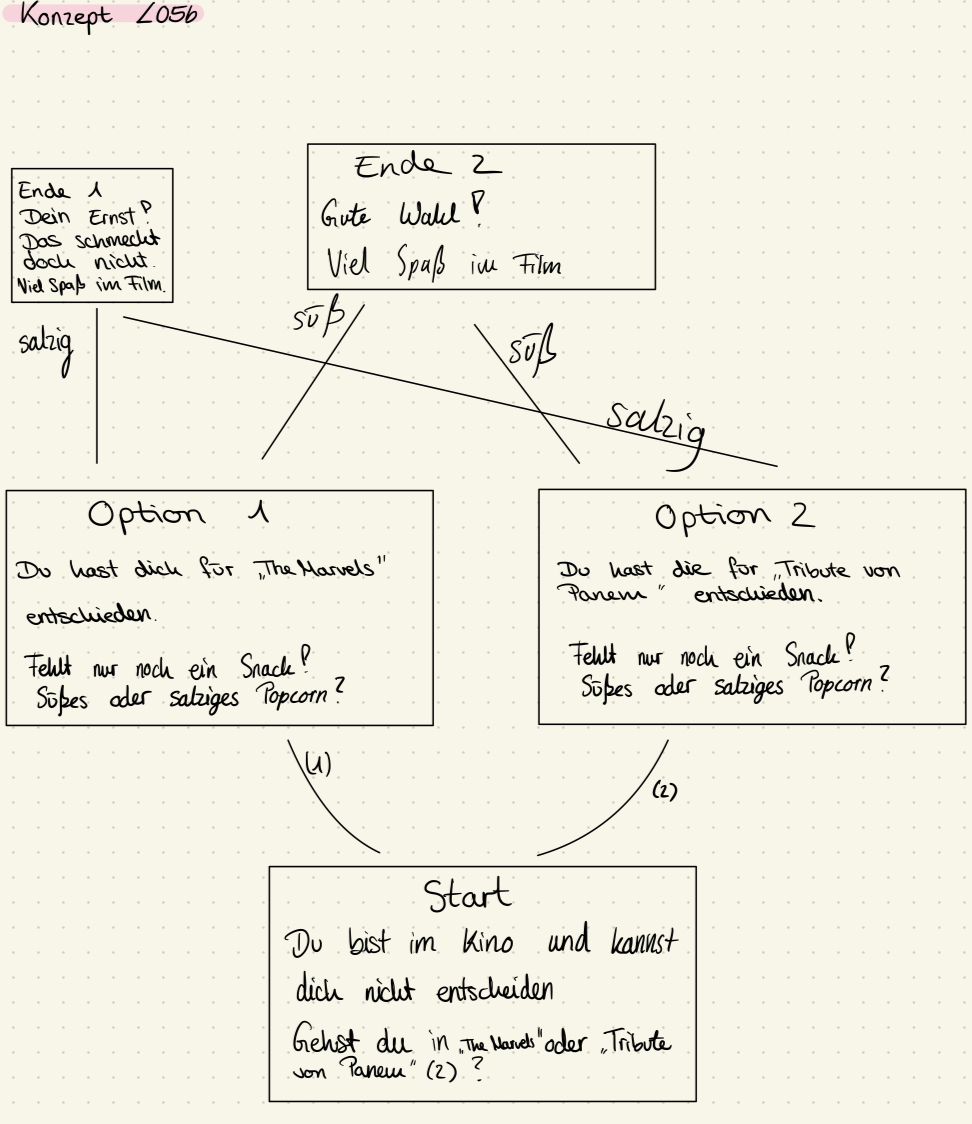 Konzept L05b
Ende 1
Dein Ernst?
Das schmeckt
doch nicht.
Viel Spaß im Film.
Ende 2
Gute Wahl!
Viel Spaß im Film
salzig
süß
süß
salzig
Option 1
Du hast dich für „The Marvels"
entschieden.
Fehlt nur noch ein Snack!
Süßes oder salziges Popcorn?
Option 2
Du hast die für „Tribute von
Panem" entschieden.
Fehlt nur noch ein Snack!
Süßes oder salziges Popcorn?
(1)
(2)
Start
Du bist im Kino und kannst
dich nicht entscheiden
Gehst du in „The Marvels" oder „Tribute
von Panem" (2) ?